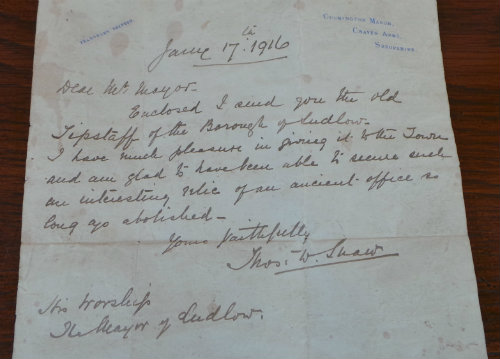 Culmington Manor,
Craven Arms,
Shropshire.
June 17th 1916
Dear Mr Mayor-
Enclosed I send you the old
Tipstaff of the Borough of Ludlow.
I have much pleasure in giving it to the Town
and am glad to have been able to secure such
an interesting relic of an ancient office so
long ago abolished-
Yours faithfully
Thos: W. Shaw
His Worship
The Mayor of Ludlow.